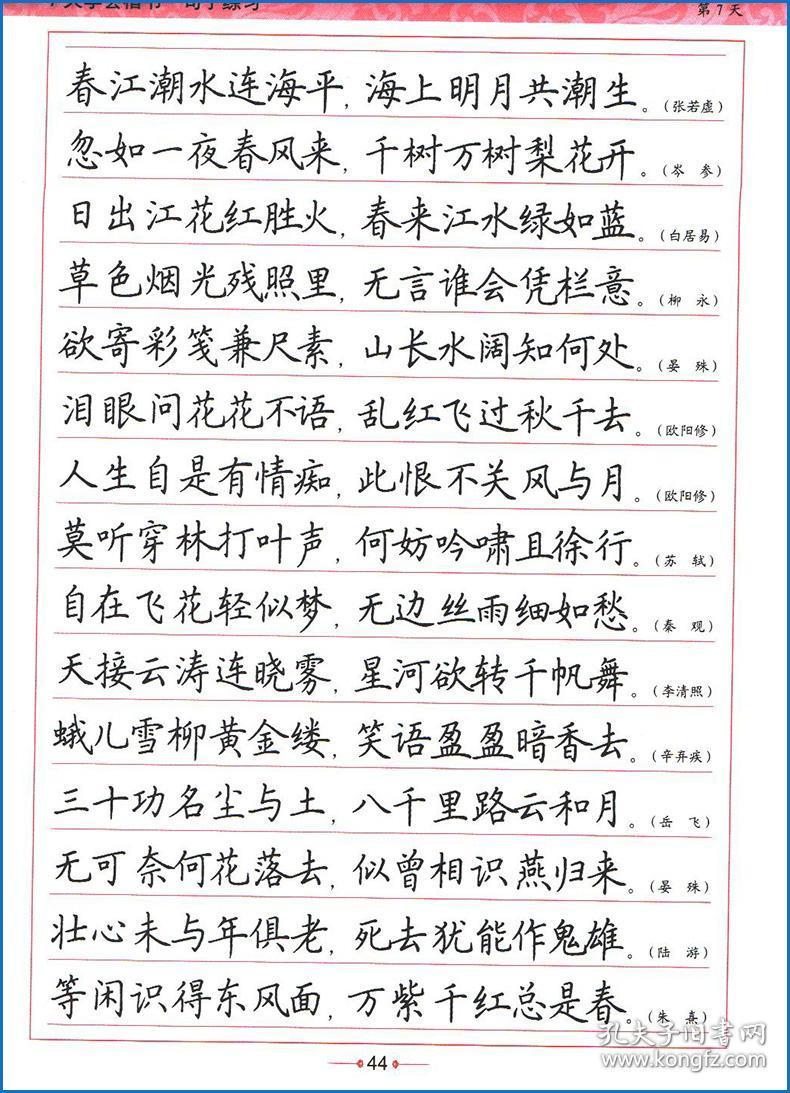 7天学会楷书 句子练习
第7天
春江潮水连海平，海上明月共潮生。（张若虚）
忽如一夜春风来，千树万树梨花开。（岑 参）
日出江花红胜火，春来江水绿如蓝。（白居易）
草色烟光残照里，无言谁会凭栏意。（柳 永）
欲寄彩笺兼尺素，山长水阔知何处。（晏 殊）
泪眼问花花不语，乱红飞过秋千去。（欧阳修）
人生自是有情痴，此恨不关风与月。（欧阳修）
莫听穿林打叶声，何妨吟啸且徐行。（苏 轼）
自在飞花轻似梦，无边丝雨细如愁。（秦 观）
天接云涛连晓雾，星河欲转千帆舞。（李清照）
蛾儿雪柳黄金缕，笑语盈盈暗香去。（辛弃疾）
三十功名尘与土，八千里路云和月。（岳 飞）
无可奈何花落去，似曾相识燕归来。（晏 殊）
壮心未与年俱老，死去犹能作鬼雄。（陆 游）
等闲识得东风面，万紫千红总是春。（朱 熹）
44
孔夫子旧书网
www.kongfz.com